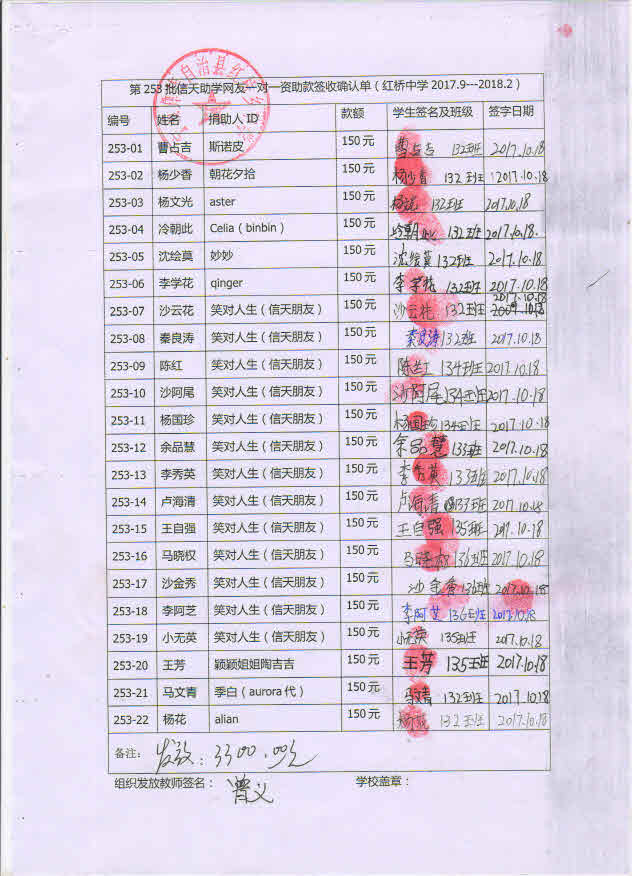 第 253 批信天助学网友一对一资助款签收确认单（红桥中学 2017.9---2018.2）
编号 姓名 捐助人 ID 款额 学生签名及班级 签字日期
253-01 曹占吉 斯诺皮 150 元 曹占吉 132班 2017.10.18
253-02 杨少香 朝花夕拾 150 元 杨少香 132班 2017.10.18
253-03 杨文光 aster 150 元 132班 2017.10.18
253-04 冷朝此 Celia（binbin） 150 元 冷朝此 132班 2017.10.18
253-05 沈绘莫 妙妙 150 元 沈绘莫 132班 2017.10.18
253-06 李学花 qinger 150 元 李学花 132班 2017.10.18
253-07 沙云花 笑对人生（信天朋友） 150 元 沙云花 132班 2017.10.18
253-08 秦良涛 笑对人生（信天朋友） 150 元 秦良涛 132班 2017.10.18
253-09 陈红 笑对人生（信天朋友） 150 元 陈红 134班 2017.10.18
253-10 沙阿尾 笑对人生（信天朋友） 150 元 沙阿尾 134班 2017.10.18
253-11 杨国珍 笑对人生（信天朋友） 150 元 杨国珍 134班 2017.10.18
253-12 余品慧 笑对人生（信天朋友） 150 元 余品慧 133班 2017.10.18
253-13 李秀英 笑对人生（信天朋友） 150 元 李秀英 133班 2017.10.18
253-14 卢海清 笑对人生（信天朋友） 150 元 卢海清 133班 2017.10.18
253-15 王自强 笑对人生（信天朋友） 150 元 王自强 135班 2017.10.18
253-16 马晓权 笑对人生（信天朋友） 150 元 马晓权 136班 2017.10.18
253-17 沙金秀 笑对人生（信天朋友） 150 元 沙金秀 136班 2017.10.18
253-18 李阿芝 笑对人生（信天朋友） 150 元 李阿芝 136班 2017.10.18
253-19 小无英 笑对人生（信天朋友） 150 元 135班 2017.10.18
253-20 王芳 颖颖姐姐陶吉吉 150 元 王芳 135班 2017.10.18
253-21 马文青 季白（aurora 代） 150 元 132班 2017.10.18
253-22 杨花 alian 150 元 杨花 132班 2017.10.18
备注： 发放：3300.00元
组织发放教师签名： 曾义 学校盖章：